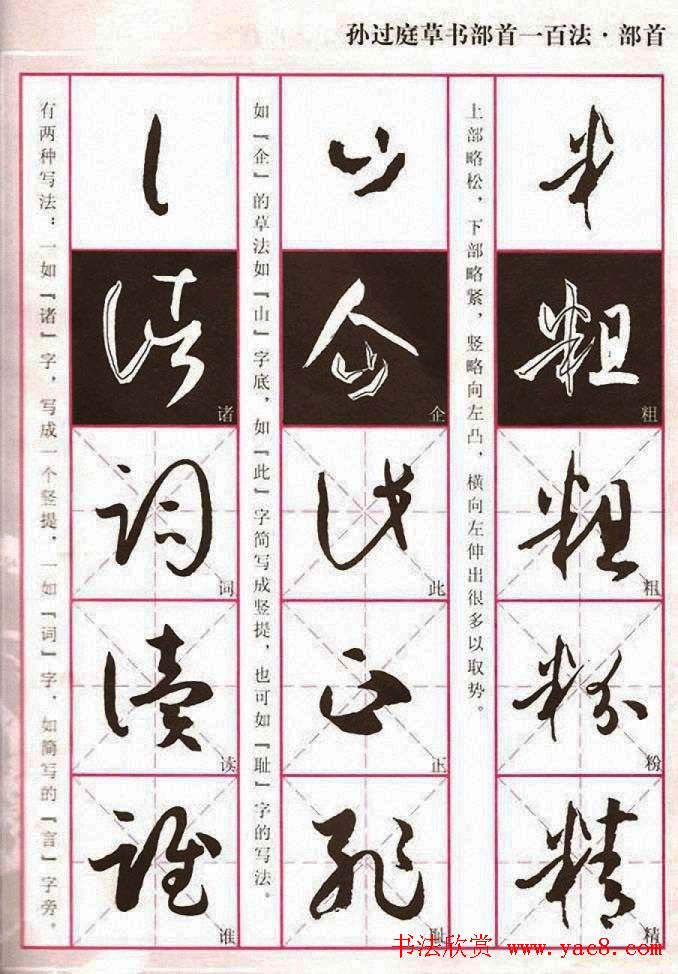 孙过庭草书部首一百法·部首
粗
粗
粉
精
上部略松，下部略紧，竖略向左凸，横向左伸出很多以取势。
企
此
正
耻
如『企』的草法如『山』字底，如『此』字简写成竖提，也可如『耻』字的写法。
诸
词
读
谁
有两种写法：一如『诸』字，写成一个竖提，一如『词』字，如简写的『言』字旁。
书法欣赏 www.yac8.com